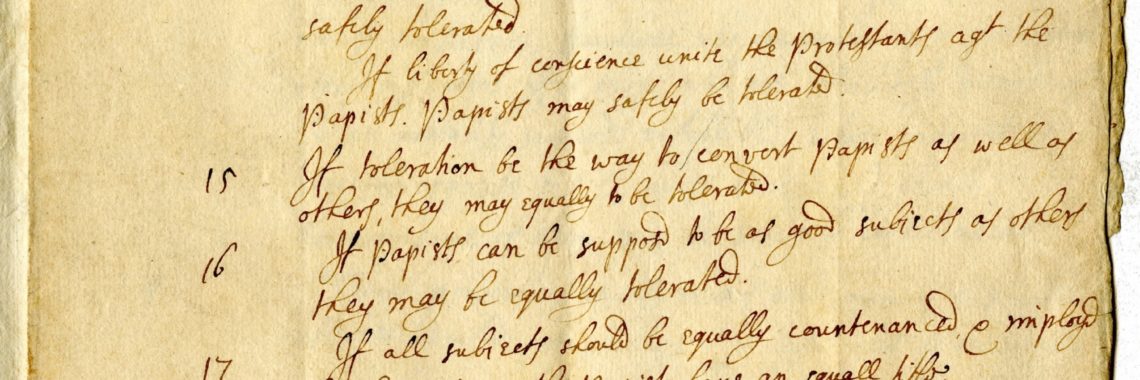 safely tolerated.
If liberty of conscience unite the Protestants agt the
Papists. Papists may safely be tolerated.
15 If toleration be the way to convert Papists as well as
others, they may equally to be tolerated.
16 If Papists can be supposd to be as good subjects as others
they may be equally tolerated.
17 If all subjects should be equally countenanced, & imployd
have an equall title